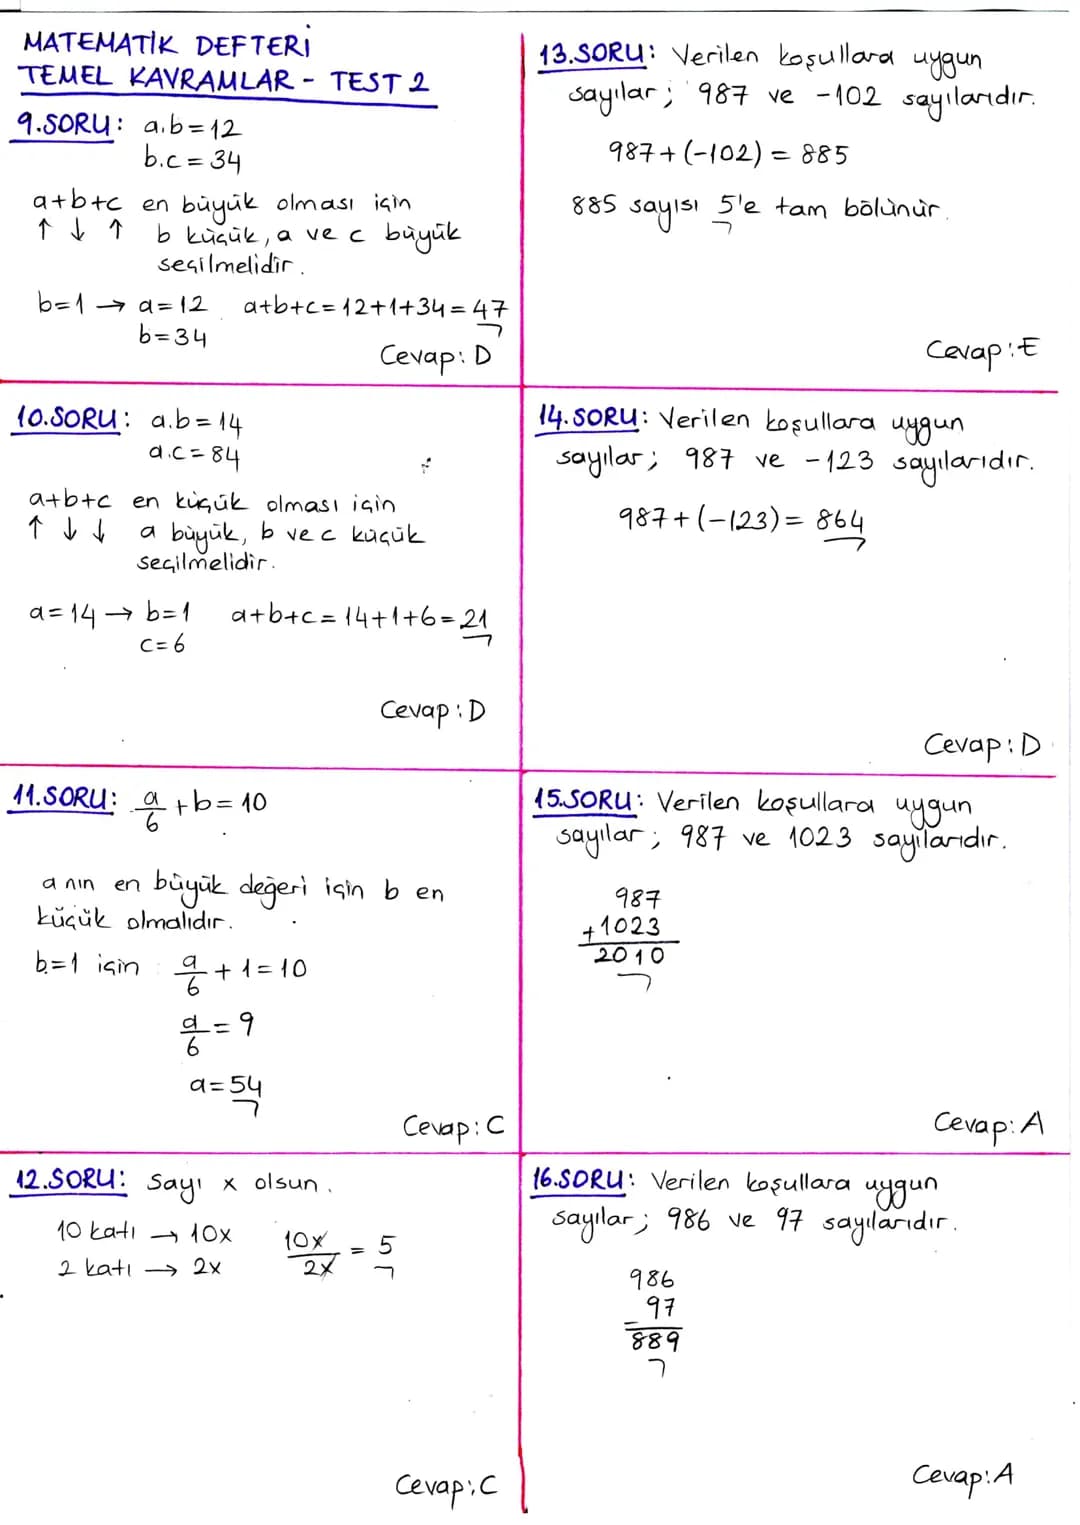 MATEMATİK DEFTERİ
TEMEL KAVRAMLAR - TEST 2
9.SORU: a.b=12
b.c=34
a+b+c en büyük olması için
↑ ↓ ↑ b küçük, a ve c büyük
seçilmelidir.
b=1 → a=12 a+b+c=12+1+34=47
b=34
Cevap: D
10.SORU: a.b=14
a.c=84
a+b+c en küçük olması için
↑ ↓ ↓ a büyük, b ve c küçük
seçilmelidir.
a=14 → b=1 a+b+c=14+1+6=21
c=6
Cevap: D
11.SORU: a/6 + b = 10
a nın en büyük değeri için b en
küçük olmalıdır.
b=1 için a/6 + 1 = 10
a/6 = 9
a=54
Cevap: C
12.SORU: Sayı x olsun.
10 katı → 10x 10x/2x = 5
2 katı → 2x
Cevap: C
13.SORU: Verilen koşullara uygun
sayılar; 987 ve -102 sayılarıdır.
987+(-102) = 885
885 sayısı 5'e tam bölünür.
Cevap: E
14.SORU: Verilen koşullara uygun
sayılar; 987 ve -123 sayılarıdır.
987+(-123) = 864
Cevap: D
15.SORU: Verilen koşullara uygun
sayılar; 987 ve 1023 sayılarıdır.
987
+1023
2010
Cevap: A
16.SORU: Verilen koşullara uygun
sayılar; 986 ve 97 sayılarıdır.
986
- 97
889
Cevap: A